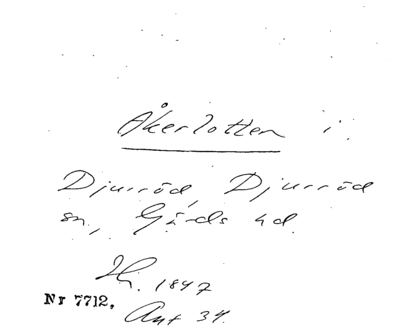 Åkerlotten i
Djurröd, Djurröd
sn, Gärds hd.
1847
Nr 7712.
Ant 34.